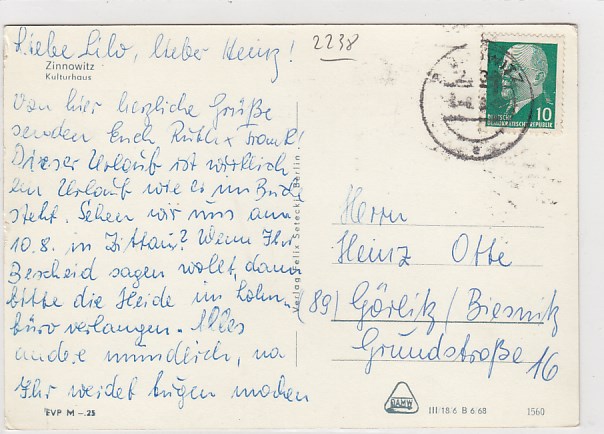 Liebe Lilo, lieber Heinz!
2238
Zinnowitz
Kulturhaus
Von hier herzliche Grüße
senden Euch Ruth + Frank!
Dieser Urlaub ist wirklich
ein Urlaub wie er im Buch
steht. Sehen wir uns am
10.8. in Zittau? Wenn Ihr
Bescheid sagen wollt, dann
bitte die Heide im Lohn-
büro verlangen. Alles
andere mündlich, na
Ihr werdet Augen machen
EVP M -.25
Verlag Felix Setecki, Berlin
10
DEUTSCHE
DEMOKRATISCHE REPUBLIK
Herrn
Heinz Otte
(89) Görlitz/Biesnitz
Grundstraße 16
DAMW
III/18/6 B 6 68
1560